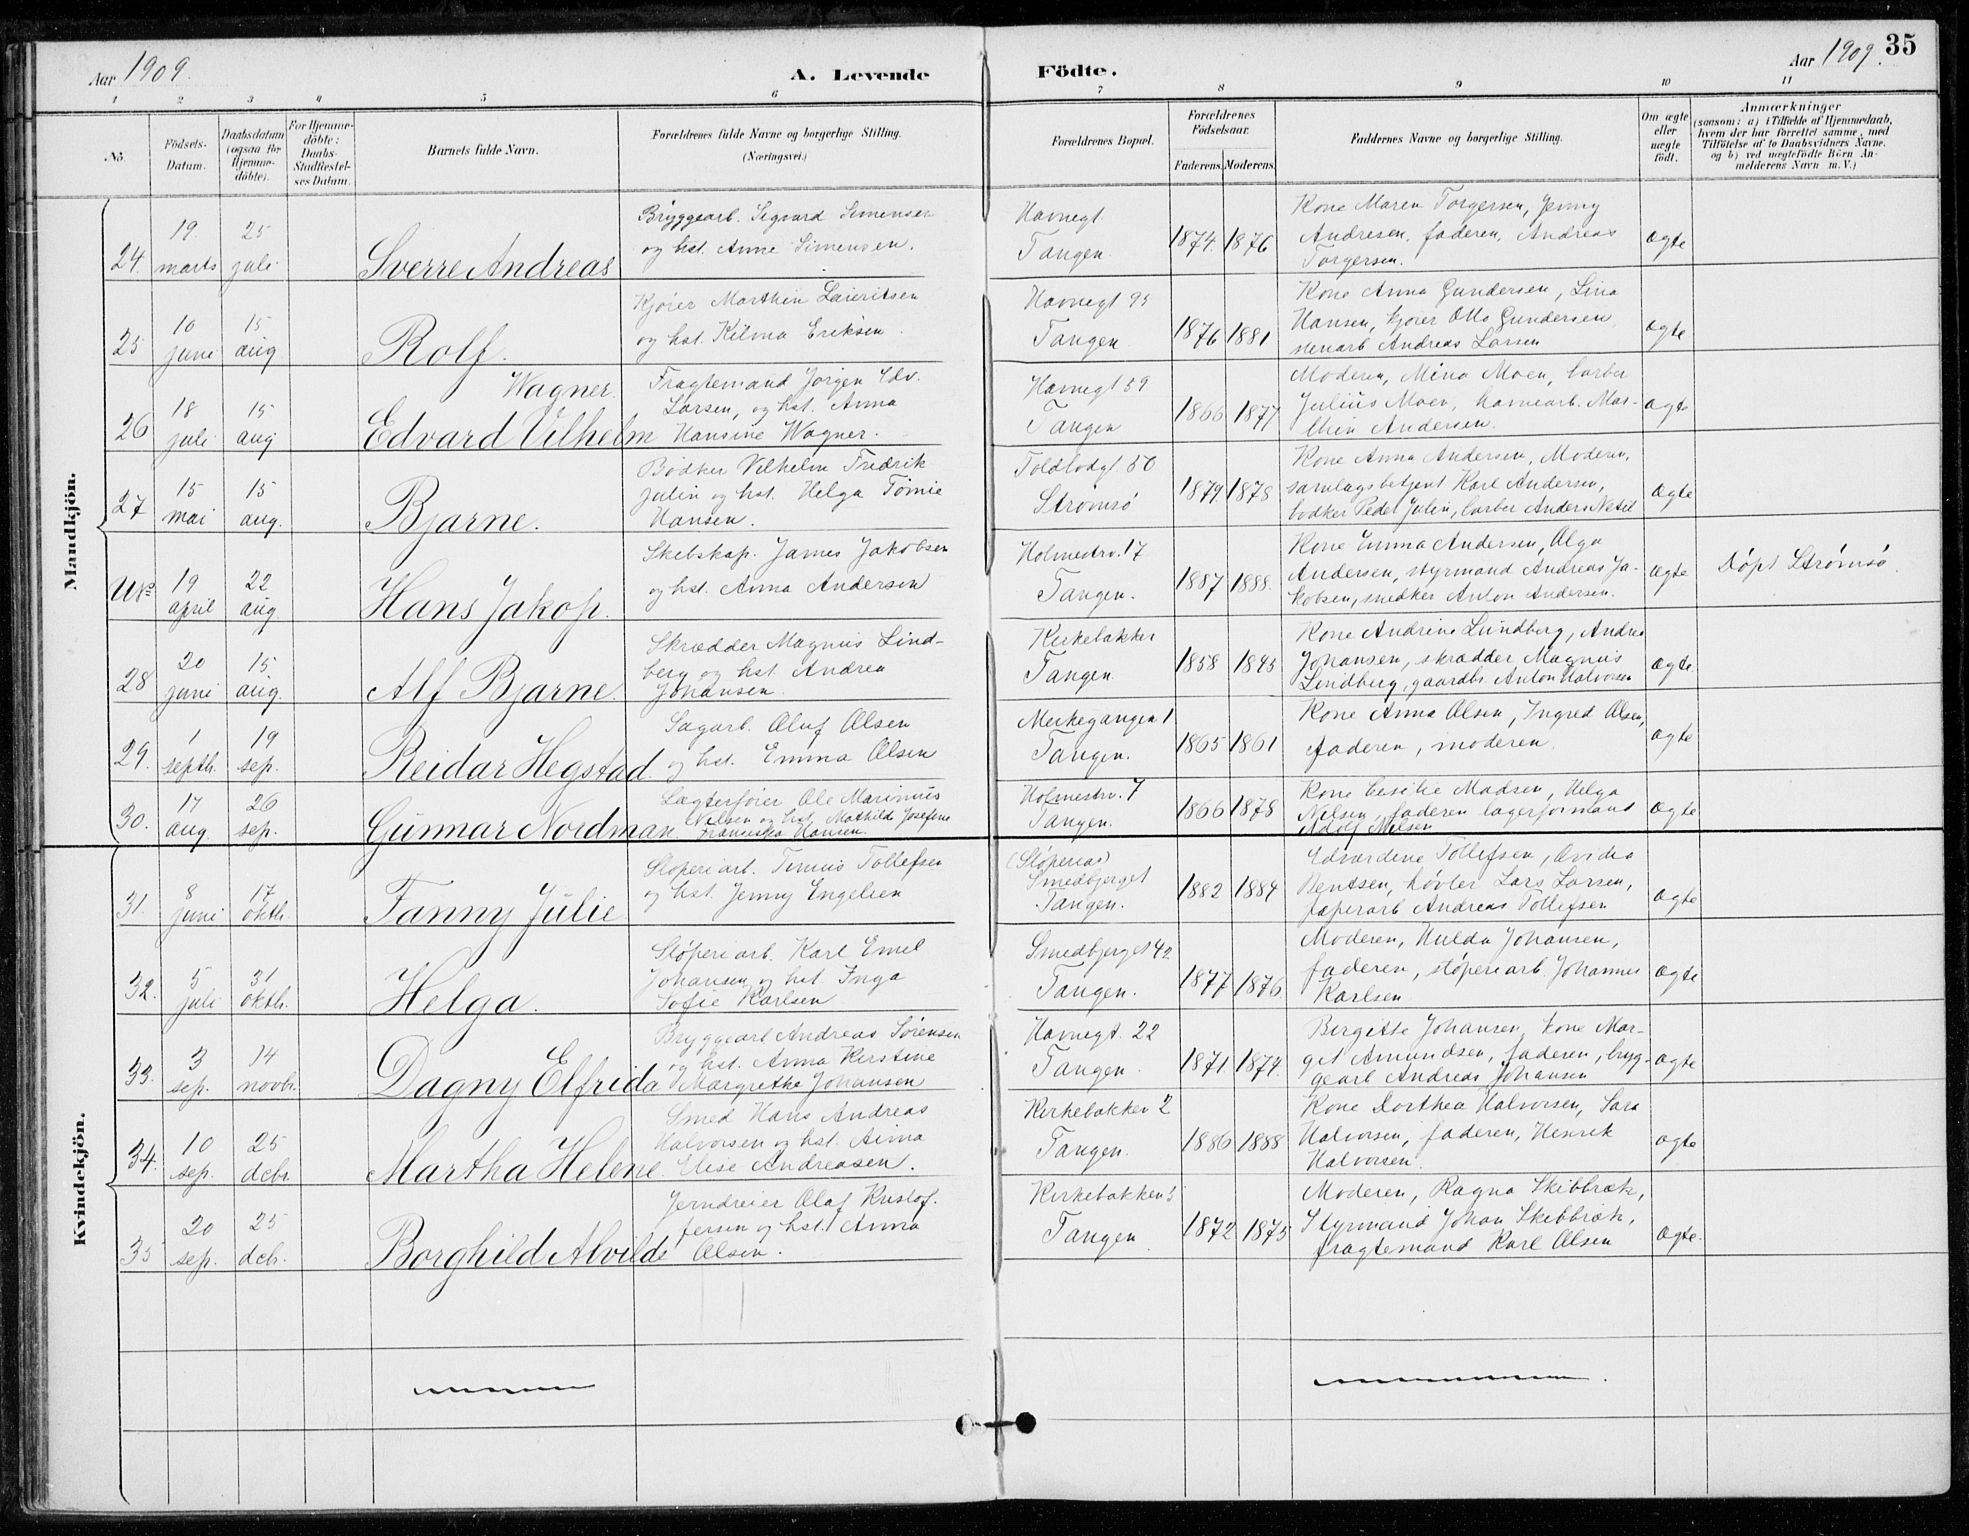 Aar 1909.
A. Levende Födte.
Aar 1909. 35
1 2 3 4 5 6 7 8 9 10 11
No.
Födsels-
Datum.
Daabsdatum
(ogsaa for
Hjemme-
döbte).
For Hjemme-
döbte:
Daabs-
Stadfæstel-
ses Datum.
Barnets fulde Navn.
Forældrenes fulde Navne og borgerlige Stilling.
(Næringsvei.)
Forældrenes Bopæl.
Forældrenes
Födselsaar.
Faderens. Moderens.
Faddernes Navne og borgerlige Stilling.
Om ægte
eller
uægte
födt.
Anmærkninger
(saasom: a) i Tilfælde af Hjemmedaab,
hvem der har forrettet samme, med
Tilföielse af to Daabsvidners Navne.
og b) ved uægtefödte Börn An-
melderens Navn m. V.)
Mandkjön.
24. 19. marts 25 juli Sverre Andreas
Bryggearb. Sigvard Simensen
og hst. Anne Simensen.
Havnegt.
Tangen.
1874. 1876
Kone Maren Torgersen, Jenny
Andresen, faderen, Andreas
Torgersen.
ægte
25 10 juni 15 aug Rolf.
Kjører Marthin Lauritsen
og hst. Eriksen.
Havnegt 95
Tangen
1876 1881
Kone Anna Gundersen, Lina
Hansen, kjører Otto Gundersen
stenarb Andreas Larsen
ægte
26 18 juli 15 aug Wagner.
Edvard Vilhelm
Fragtemand Jørgen Edv.
Larsen, og hst. Anna
Hansine Wagner.
Havnegt 59
Tangen
1866 1877
Moderen, Mina Moen, barber
Julius Moen, havnearb. Mar-
thin Andersen.
ægte
27 15 mai 15 aug. Bjarne.
Bødker Vilhelm Fredrik
Julin og hst. Helga Tomie
Hansen.
Toldbodgt. 50
Strømsø
1879 1878
Kone Anna Andersen, Moderen,
samlagsbetjent Karl Andersen,
bødker Peder Julin, barber Anders
ægte
19 april 22 aug Hans Jakop.
Skibskap. James Jakobsen
og hst. Anna Andersen
Holmestrv. 17
Tangen.
1887 1888.
Kone Emma Andersen, Olga
Andersen, styrmand Andreas Ja-
kobsen, snedker Anton Andersen.
ægte
Døpt Strømsø.
28 20 juni 15 aug. Alf Bjarne.
Skrædder Magnus Lind-
berg og hst. Andrea
Johansen.
Kirkebakken
Tangen.
1858
Kone Andrine Lundberg, Andrea
Johansen, skrædder Magnus
Lindberg, gaardbr. Anton Halvorsen
ægte
29. 1 septb. 19 sep. Reidar Hegstad
Sagarb. Oluf Olsen
og hst. Emma Olsen
1
Tangen.
1865 1861
Kone Anna Olsen, Ingred Olsen,
faderen, moderen.
ægte
30. 17 aug. 26 sep. Gunnar Nordman
Lægterfører Ole Marinius
Nilsen og hst. Mathilde Josefine
Franciska Hansen.
Holmestrv. 7
Tangen.
1866 1878
Kone Cesilie Madsen, Helga
Nilsen, faderen lagerformand
Adolf Nilsen
ægte
Kvindekjön.
31. 8 juni 17 oktb. Fanny Julie
Støperiarb. Tollefsen
og hst. Jenny Engelsen
Smedbjerget
Tangen.
1882 1884
Edvardine Tollefsen, Ovidia
Bentsen, høvler Lars Larsen,
papirarb Andreas Tollefsen
ægte
32. 5 juli 31 oktb. Helga.
Støperiarb. Karl Emil
Johansen og hst Inga
Sofie Karlsen
Smedbjerget 42
Tangen.
1877 1876
Moderen, Hulda Johansen,
faderen, støperiarb. Johannes
Karlsen
ægte
33. 3 sep. 14 novbr. Dagny Elfrida
Bryggearb Andreas Sørensen
og hst. Anna Kirstine
Margrethe Johansen
Havnegt. 22
Tangen.
1871 1874.
Birgitte Johansen, kone Mar-
git Amundsen, faderen, bryg-
gearb Andreas Johansen
ægte
34. 10 sep. 25 debr. Martha Helene
Smed Hans Andreas
Halvorsen og hst. Anna
Elise Andreasen.
Kirkebakken 2
Tangen.
1886 1888
Kone Dorthea Halvorsen, Sara
Halvorsen, faderen, Henrik
Halvorsen.
ægte
35 20 sep. 25 debr. Borghild Alvilde
Jerndreier Olaf Kristof-
fersen og hst. Anna
Olsen.
Kirkebakken 5
Tangen
1872 1875
Moderen, Ragna Skibbræk,
Styrmand Johan Skibbræk,
fragtemand Karl Olsen
ægte.